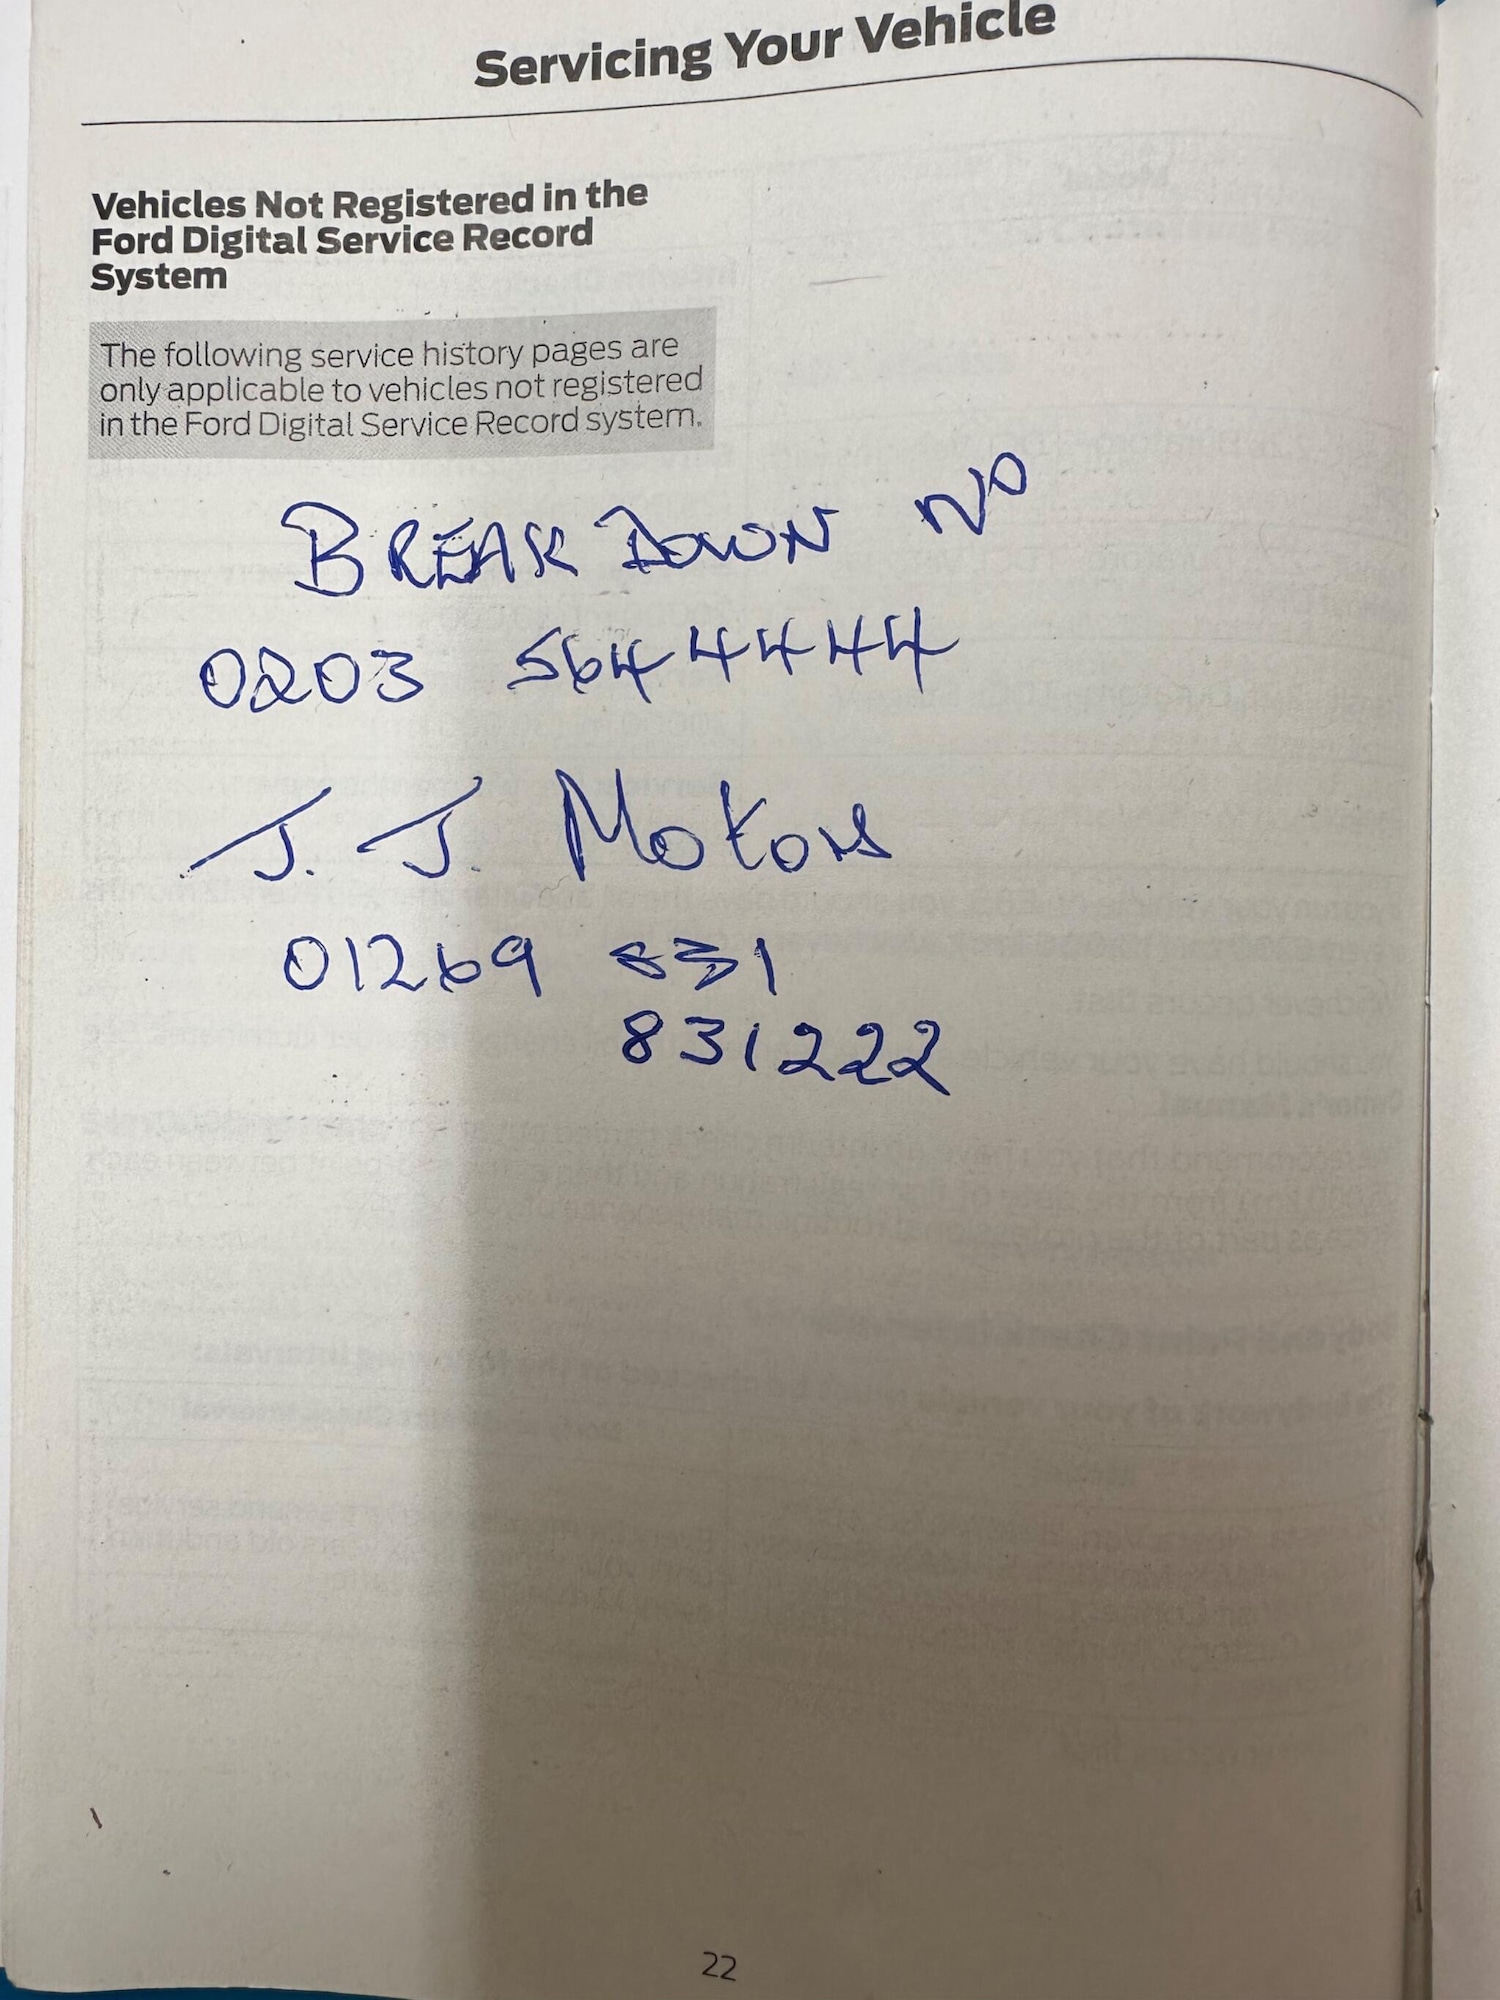 Servicing Your Vehicle
Vehicles Not Registered in the
Ford Digital Service Record
System
The following service history pages are
only applicable to vehicles not registered
in the Ford Digital Service Record system.
BREAK DOWN NO
0203 564 4444
J. J. Motors
01269 831
831222
22